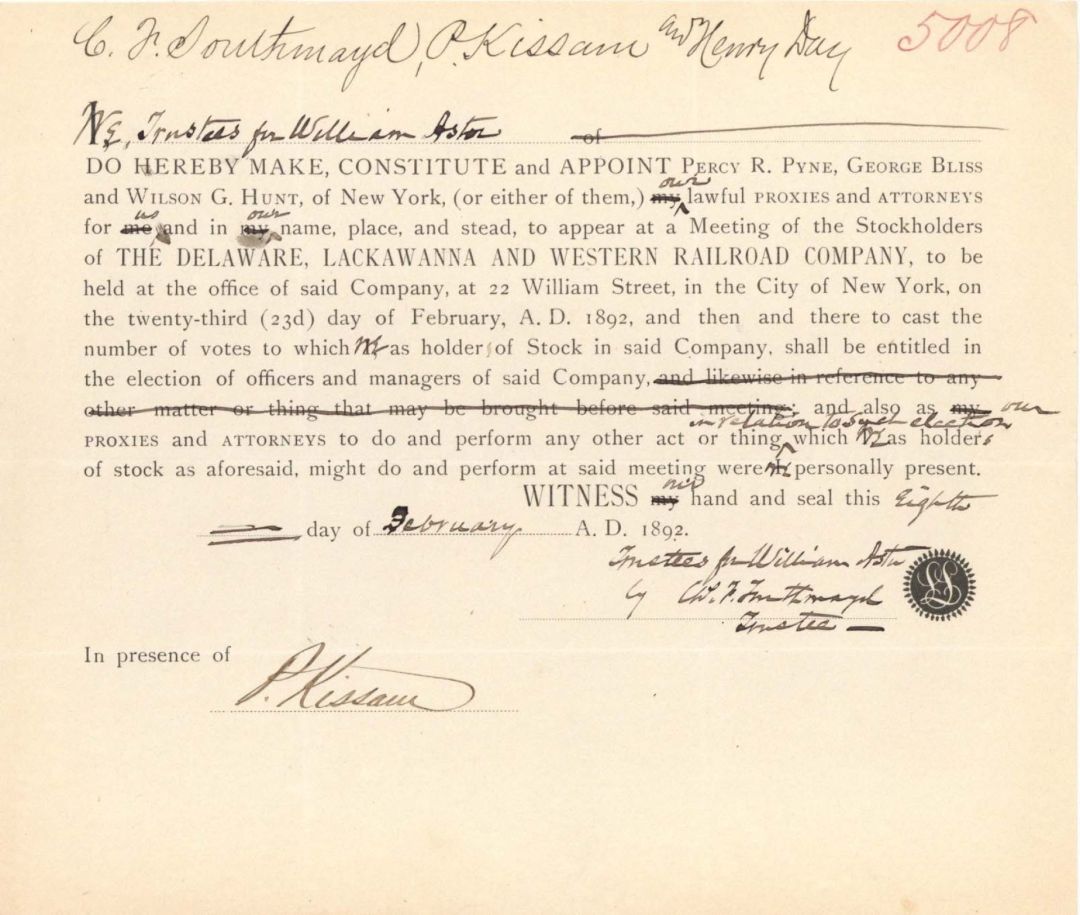 C. F. Southmayd, P. Kissam and Henry Day 5008
We, Trustees for William Astor of
DO HEREBY MAKE, CONSTITUTE and APPOINT PERCY R. PYNE, GEORGE BLISS
our
and WILSON G. HUNT, of New York, (or either of them,) my lawful PROXIES and ATTORNEYS
us our
for me and in my name, place, and stead, to appear at a Meeting of the Stockholders
of THE DELAWARE, LACKAWANNA AND WESTERN RAILROAD COMPANY, to be
held at the office of said Company, at 22 William Street, in the City of New York, on
the twenty-third (23d) day of February, A. D. 1892, and then and there to cast the
number of votes to which We as holders of Stock in said Company, shall be entitled in
the election of officers and managers of said Company, and likewise in reference to any
other matter or thing that may be brought before said meeting; and also as my our
in relation to such election
PROXIES and ATTORNEYS to do and perform any other act or thing which We as holders
of stock as aforesaid, might do and perform at said meeting were We personally present.
our
WITNESS my hand and seal this Eighth
day of February A. D. 1892.
Trustees for William Astor
by Ch. F. Southmayd
Trustee
LS
In presence of
P. Kissam